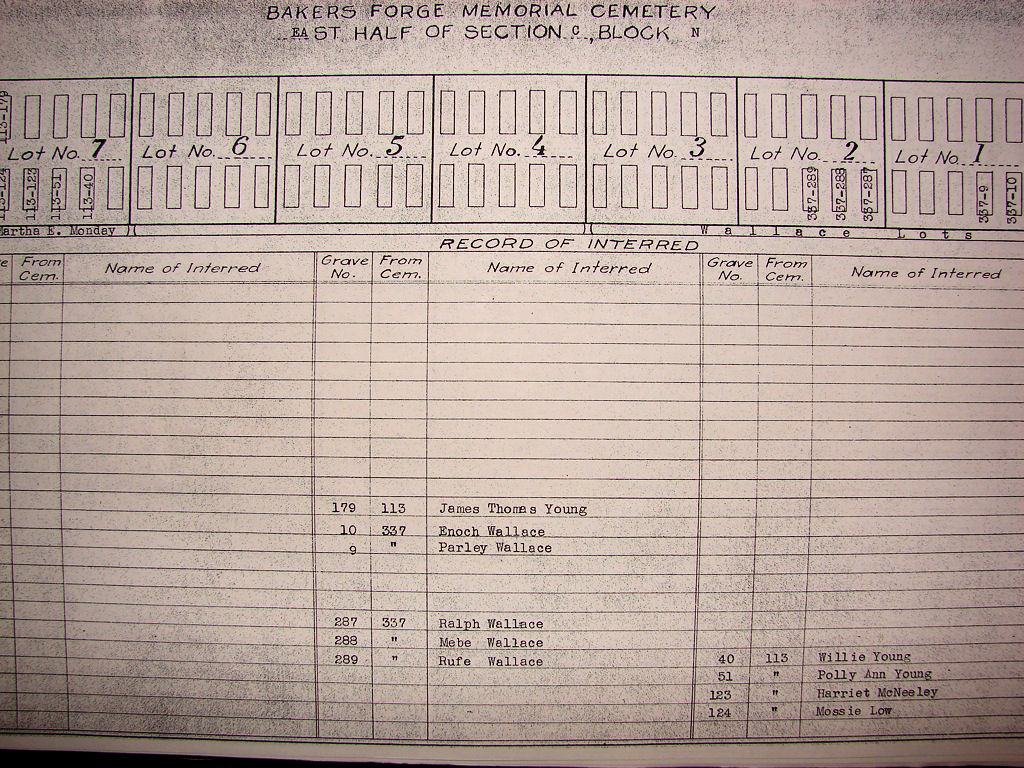 BAKERS FORGE MEMORIAL CEMETERY
EAST HALF OF SECTION C, BLOCK N
113-179
Lot No. 7 Lot No. 6 Lot No. 5 Lot No. 4 Lot No. 3 Lot No. 2 Lot No. 1
113-124 113-123 113-51 113-40 337-289 337-288 337-287 337-9 337-10
Martha E. Monday Wallace Lots
RECORD OF INTERRED
From Cem. Name of Interred Grave No. From Cem. Name of Interred Grave No. From Cem. Name of Interred
179 113 James Thomas Young
10 337 Enoch Wallace
9 " Parley Wallace
287 337 Ralph Wallace
288 " Mebe Wallace
289 " Rufe Wallace
40 113 Willie Young
51 " Polly Ann Young
123 " Harriet McNeeley
124 " Mossie Low